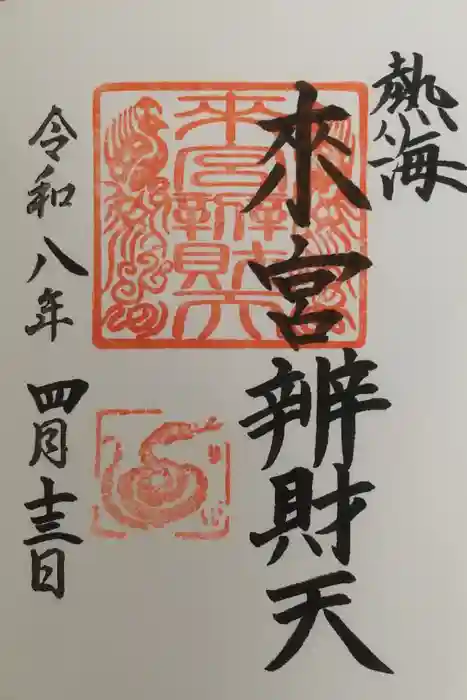 熱海
來宮辨財天
令和八年
四月十三日
來宮辨財天